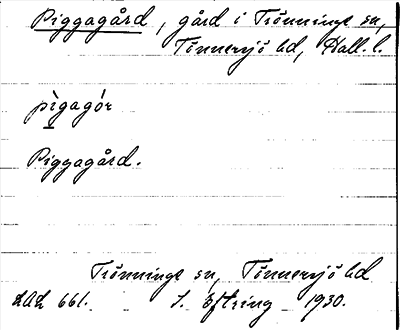 Piggagård, gård i Trönninge sn,
Tönnersjö hd, Hall. l.
pìgagór
Piggagård.
Trönninge sn, Tönnersjö hd
LAL 661. J. Öftring 1930.